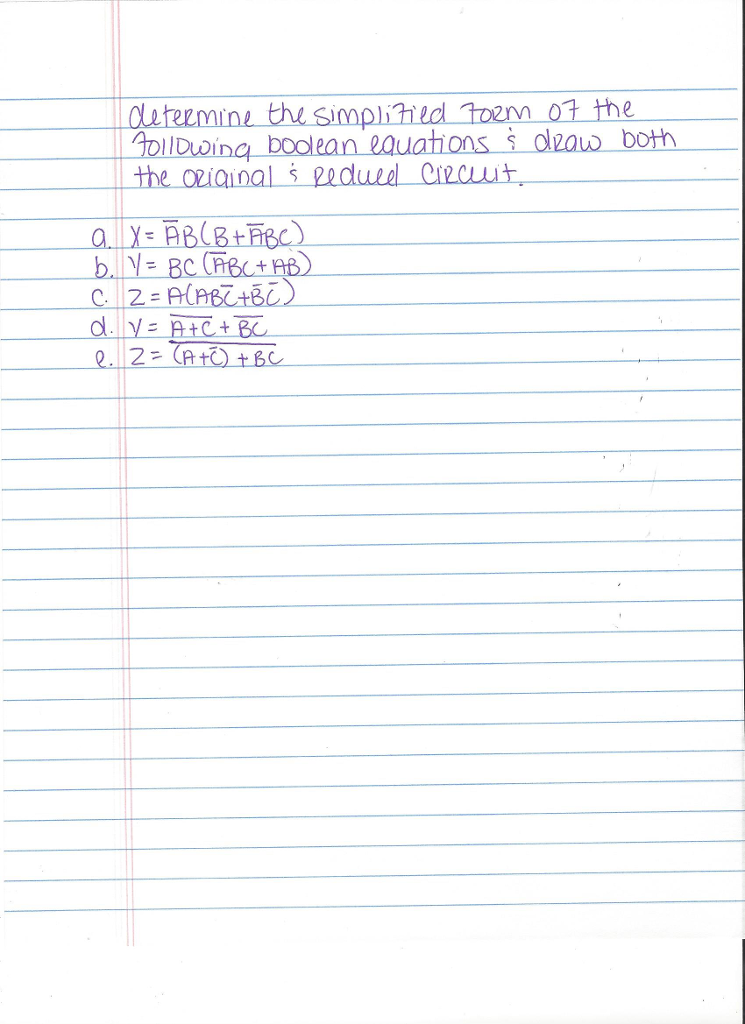 determine the simplified form of the
following boolean equations & draw both
the original & reduced circuit.
a. X = A̅B(B+A̅BC)
b. Y = BC(A̅BC+AB)
c. Z = A(ABC̅+B̅C̅)
d. Y = A̅+̅C̅ + B̅C̅
e. Z = (̅A̅+̅C̅)̅ ̅+̅ ̅B̅C̅